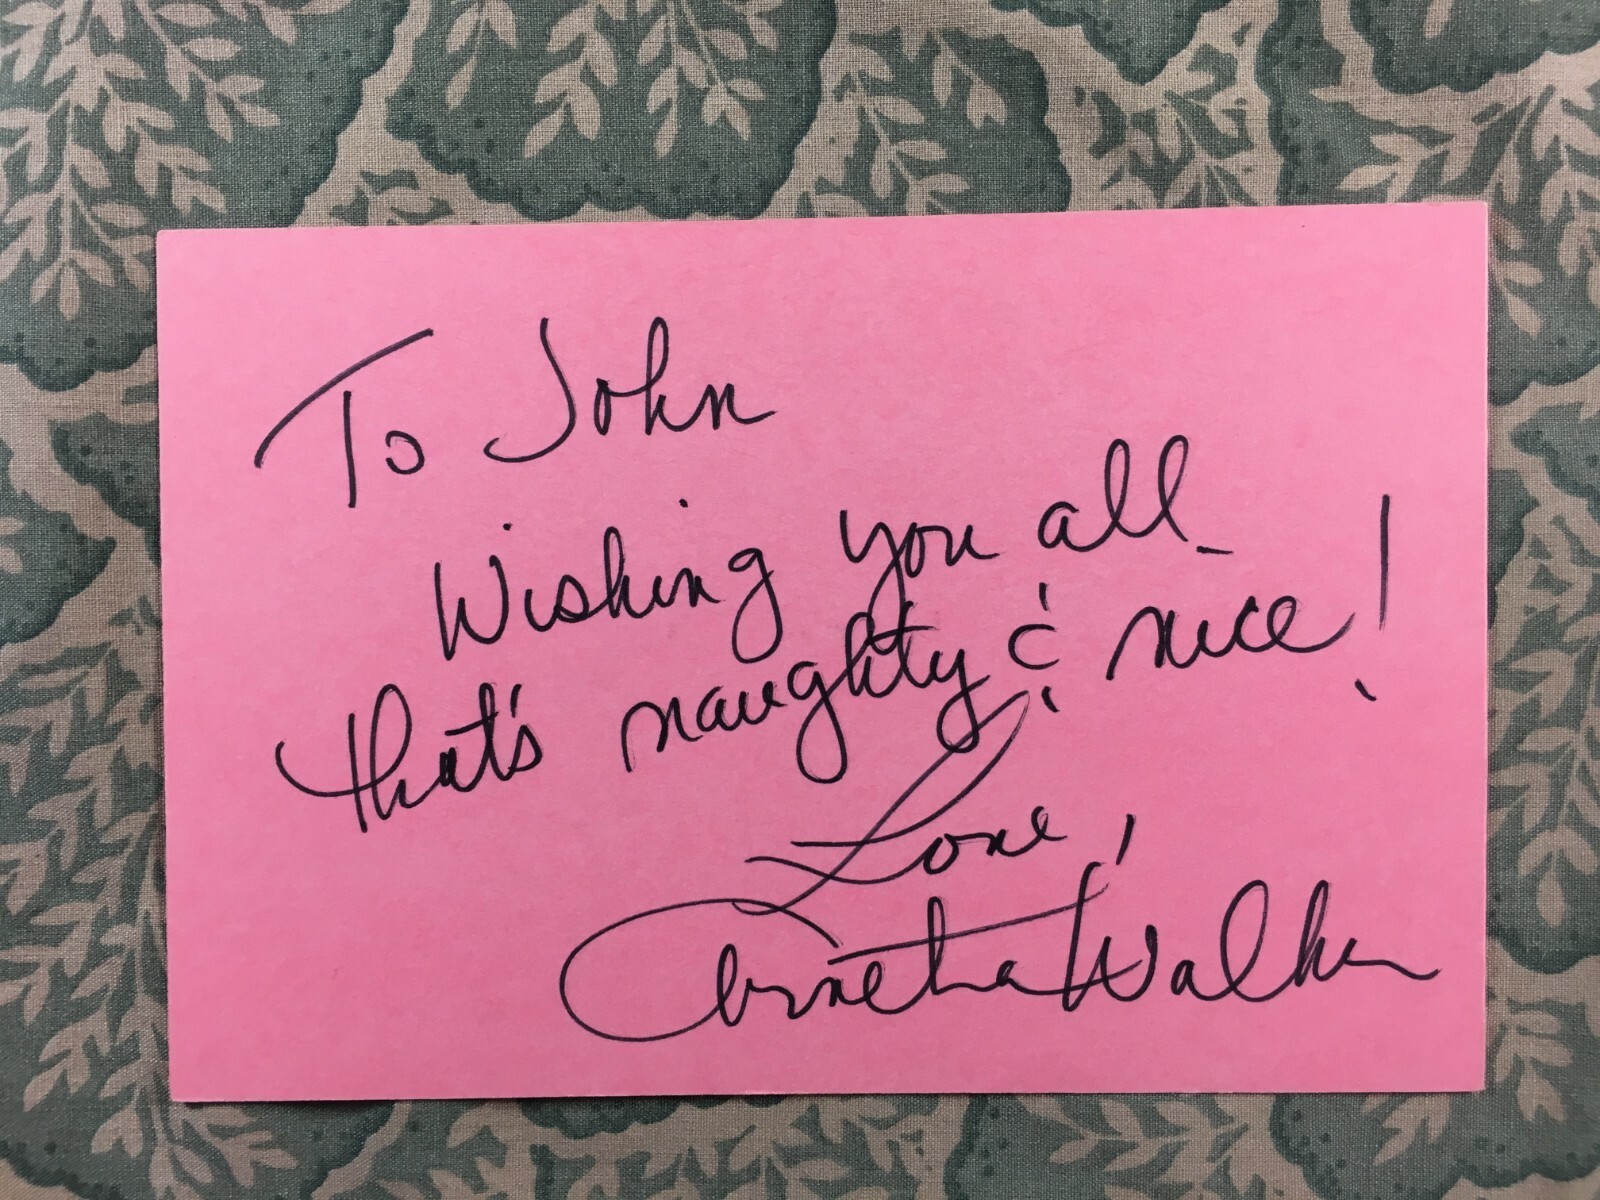 To John
Wishing you all
that's naughty & nice!
Love,
Arnetia Walker